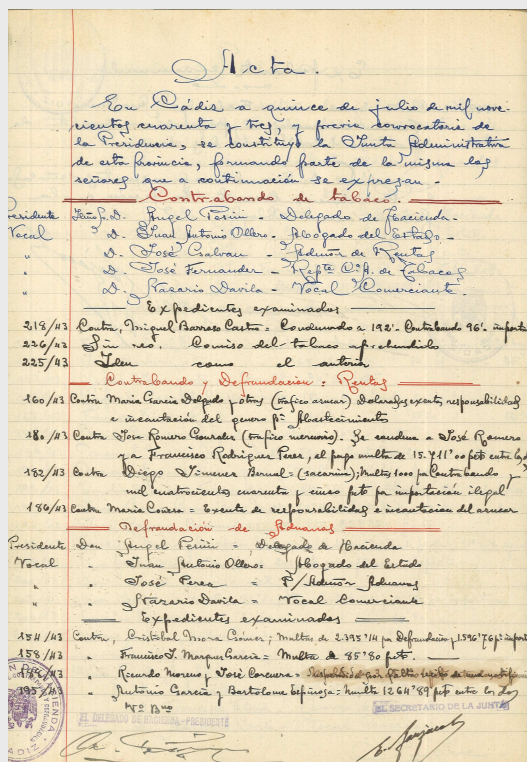 Acta.
En Cádiz a quince de julio de mil nove-
cientos cuarenta y tres, y previa convocatoria de
la Presidencia, se constituyó la Junta Administrativa
de esta Provincia, formando parte de la misma los
señores que a continuación se expresan.
Contrabando de tabaco.
Presidente Señor D. Angel Periñ - Delegado de Hacienda.
Vocal D. Juan Antonio Ollero. - Abogado del Estado. -
" D. José Galvan - Admor de Rentas
" D. José Fernandez - Repte Cª A. de Tabacos
" D. Nazario Davila - Vocal Comerciante.
Expedientes examinados
218/43 Contra, Miguel Barroso Castro = Condenado a 192'- Contrabando 96'- import
226/43 Sin reo. Comiso del tabaco aprehendido
225/43 Idem como el anterior
Contrabando y Defraudacion: Rentas
160/43 Contra Maria Garcia Delgado y otros (trafico azucar) Declarados exentos responsabilidad
e incautación del genero pª Abastecimiento
180/43 Contra Jose Romero Gonzalez (trafico mercurio). Se condena a José Romero
y a Francisco Rodriguez Perez, el pago multa de 15.711'00 pets entre los
182/43 Contra Diego Jimenez Bernal = (sacarina); Multa 1000 por Contrabando y
mil cuatrocientos cuarenta y cinco pets por importación ilegal
186/43 Contra Maria = Exenta de responsabilidad e incautacion del azucar
Defraudacion de Aduanas
Presidente Don Angel Periñ = Delegado de Hacienda
Vocal . Juan Antonio Ollero = Abogado del Estado
" . José Perea = P/ Admor Aduanas
" . Nazario Davila = Vocal Comerciante
Expedientes examinados
154/43 Contra, Cristobal Mora Gómez; Multas de 2.395'14 por Defraudacion y 1.596'76 pr import
158/43 " Francisco J. Marques Garcia = Multa de 85'80 pets.
" Ricardo Moreno y José Corchera =
195/43 " Antonio Garcia y Bartolome Espinosa = multa 1264'89 pets entre los dos
Vº Bno
EL DELEGADO DE HACIENDA-PRESIDENTE
EL SECRETARIO DE LA JUNTA